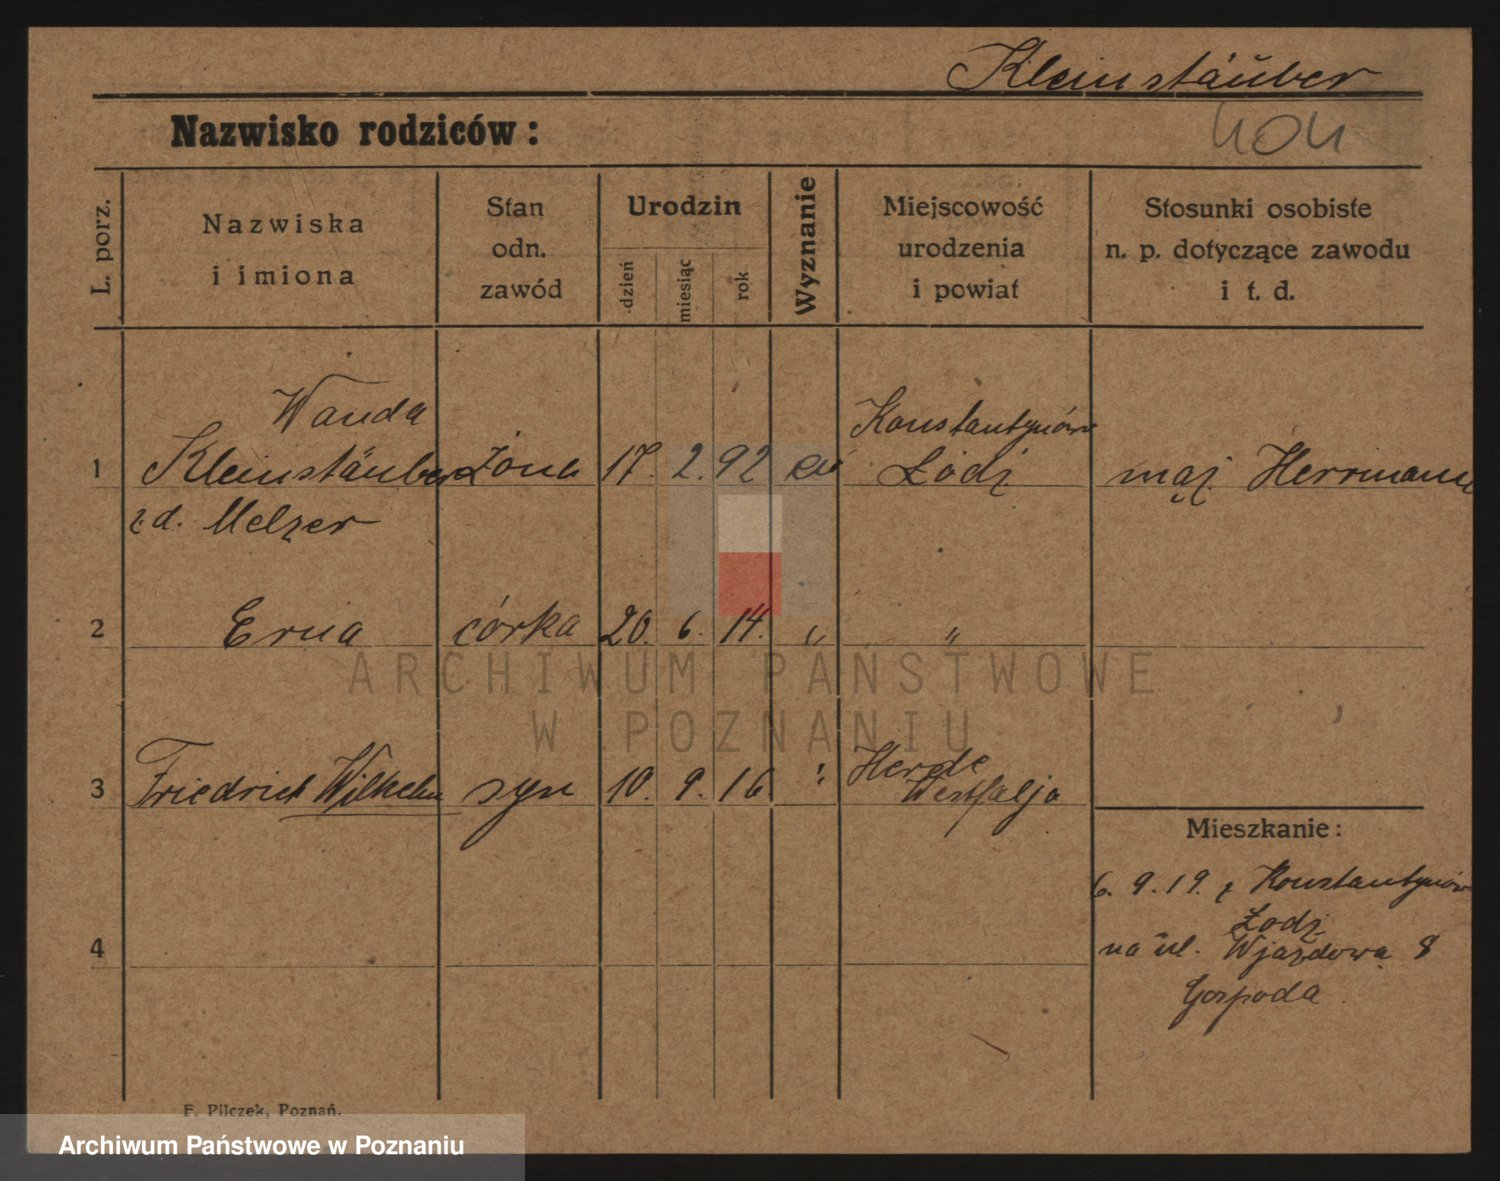 Kleinstäuber
Nazwisko rodziców:
404
L. porz.
Nazwiska
i imiona
Stan
odn.
zawód
Urodzin
dzień
miesiąc
rok
Wyznanie
Miejscowość
urodzenia
i powiat
Stosunki osobiste
n. p. dotyczące zawodu
i t. d.
Wanda
1 Kleinstäuber żona 17. 2. 92 ew Konstantynów
Łódź mąż Herrmann
z d. Melzer
2 Erna córka 20. 6. 14. " "
3 Friedrich Wilhelm syn 10. 9. 16 " Herde
Westfalja
Mieszkanie:
6. 9. 19. z Konstantynów
Łodź
4 na ul. Wjazdowa 8
Gospoda
F. Pilczek, Poznań.
ARCHIWUM PAŃSTWOWE
W POZNANIU
Archiwum Państwowe w Poznaniu